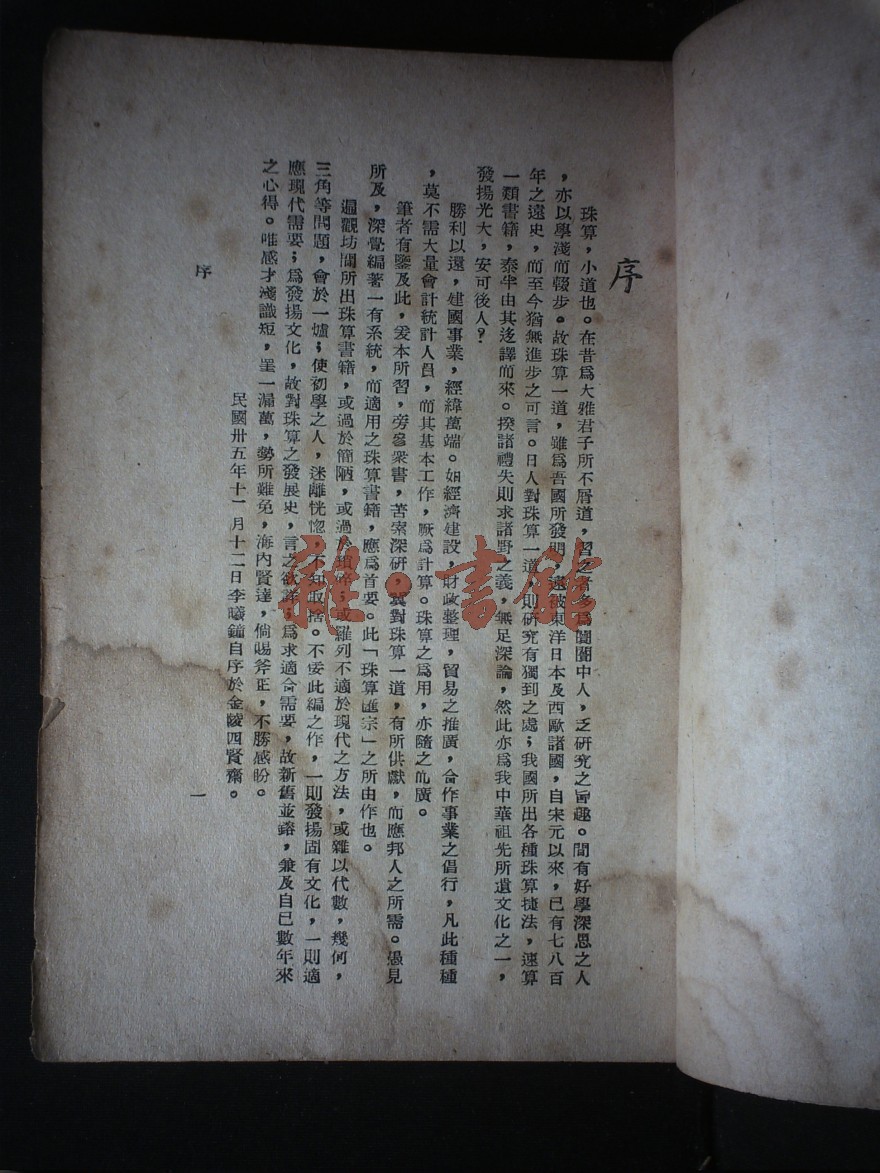 序
珠算,小道也。在昔爲大雅君子所不屑道,習之者多爲闤闠中人,乏研究之旨趣。間有好學深思之人
,亦以學淺而輟步。故珠算一道,雖爲吾國所發明,遠被東洋日本及西歐諸國,自宋元以來,已有七八百
年之遠史,而至今猶無進步之可言。日人對珠算一道,則研究有獨到之處;我國所出各種珠算捷法,速算
一類書籍,泰半由其迻譯而來。揆諸禮失則求諸野之義,無足深論,然此亦爲我中華祖先所遺文化之一,
發揚光大,安可後人?
勝利以還,建國事業,經緯萬端。如經濟建設,財政整理,貿易之推廣,合作事業之倡行,凡此種種
,莫不需大量會計統計人員,而其基本工作,厥爲計算。珠算之爲用,亦隨之而廣。
筆者有鑒及此,爰本所習,旁參衆書,苦索深研,冀對珠算一道,有所供獻,而應邦人之所需。憑見
所及,深覺編著一有系統,而適用之珠算書籍,應爲首要。此「珠算匯宗」之所由作也。
遍觀坊間所出珠算書籍,或過於簡陋,或過於瑣碎;或羅列不適於現代之方法,或雜以代數,幾何,
三角等問題,會於一爐;使初學之人,迷離恍惚,不知取捨。不佞此編之作,一則發揚固有文化,一則適
應現代需要;爲發揚文化,故對珠算之發展史,言之欲詳;爲求適合需要,故新舊並鎔,兼及自己數年來
之心得。唯感才淺識短,罣一漏萬,勢所難免,海內賢達,倘賜斧正,不勝感盼。
民國卅五年十一月十二日李曦鐘自序於金陵四賢齋。
序
一
雜·書館